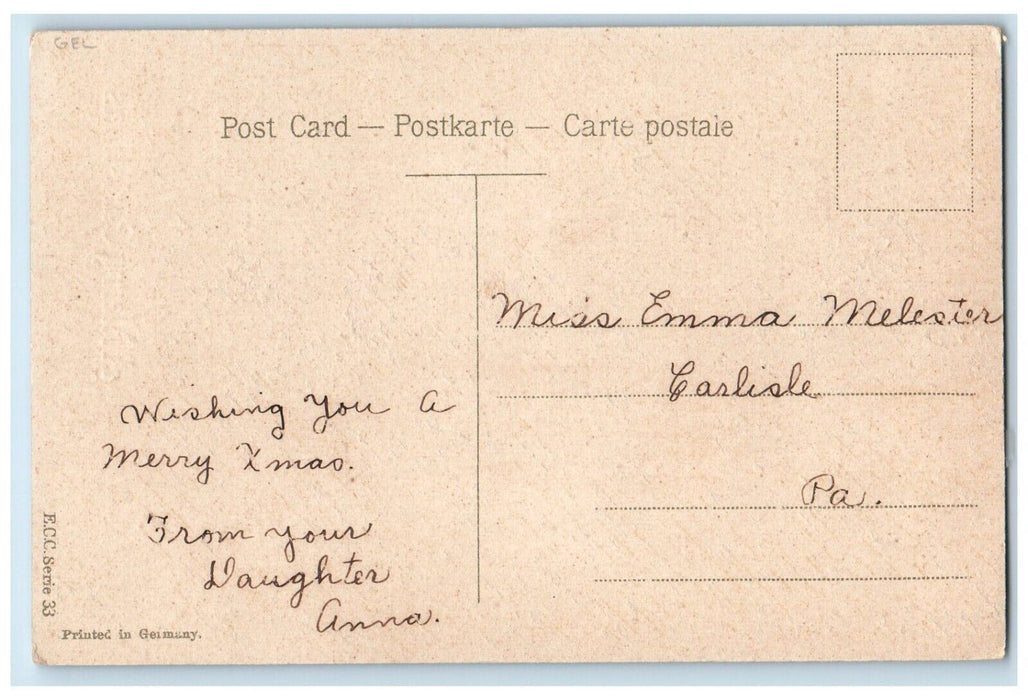 GEL
Post Card — Postkarte — Carte postale
Miss Emma Melester
Carlisle
Pa.
Wishing You A
Merry Xmas.
From your
Daughter
Anna.
E.C.C. Serie 33
Printed in Germany.